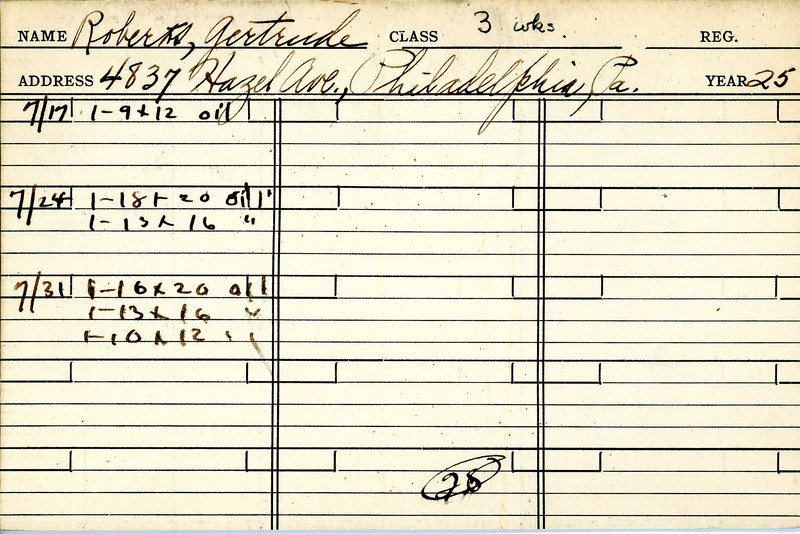 NAME Roberts, Gertrude CLASS 3 wks. REG.
ADDRESS 4837 Hazel Ave., Philadelphia, Pa. YEAR 25
7/17 1-9x12 oil
7/24 1-18x20 oil 1
1-13x16 "
7/31 1-16x20 oil
1-13x16 "
1-10x12 "